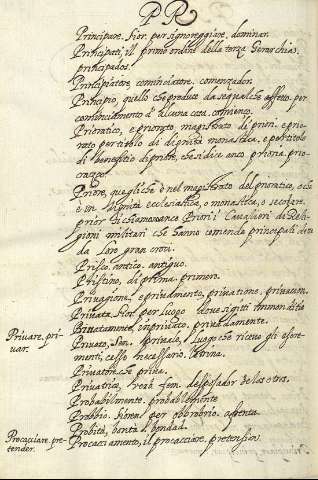 PR
Principare. fior. per signoreggiare, dominar.
Principati, il primo ordine della terza Gerarchia.
principados.
Principiatore, cominciatore. comenzador.
Principio, quello che produce da se qualche effetto. per
cominciamento d'alcuna cosa. comienço.
Prioratico, e priorato, magistrato di priori. e prio
rato per titolo di dignità monastica, e per titolo
di beneficio di priore, che si dice anco prioria. prio
Priore, quegli che è nel magistrato del prioratico, o che
è in dignità ecclesiastica, o monastica, o secolare.
prior si chiamavano Priori i Cavalieri di Reli
gioni militari che hanno comenda principali detta
da Loro gran croci.
Prisco. antico. antiguo.
Pristino, di prima. primero.
Privagione, e privamento, privatione. privacion.
Privata fior per luogo dove si gitti immonditia
Privatamente, in privato. privadamente.
Privare, pri-
var.
Privato, luogo che riceve gli escre-
menti, cesso necessario. latrina.
Privatore che priva.
Probabilmente. probablemente
Probbio. per obbrobrio. afrenta.
Probità, bontà. bondad.
Procacciare. pre-
tender.
Procacciamento, il procacciare. pretension.